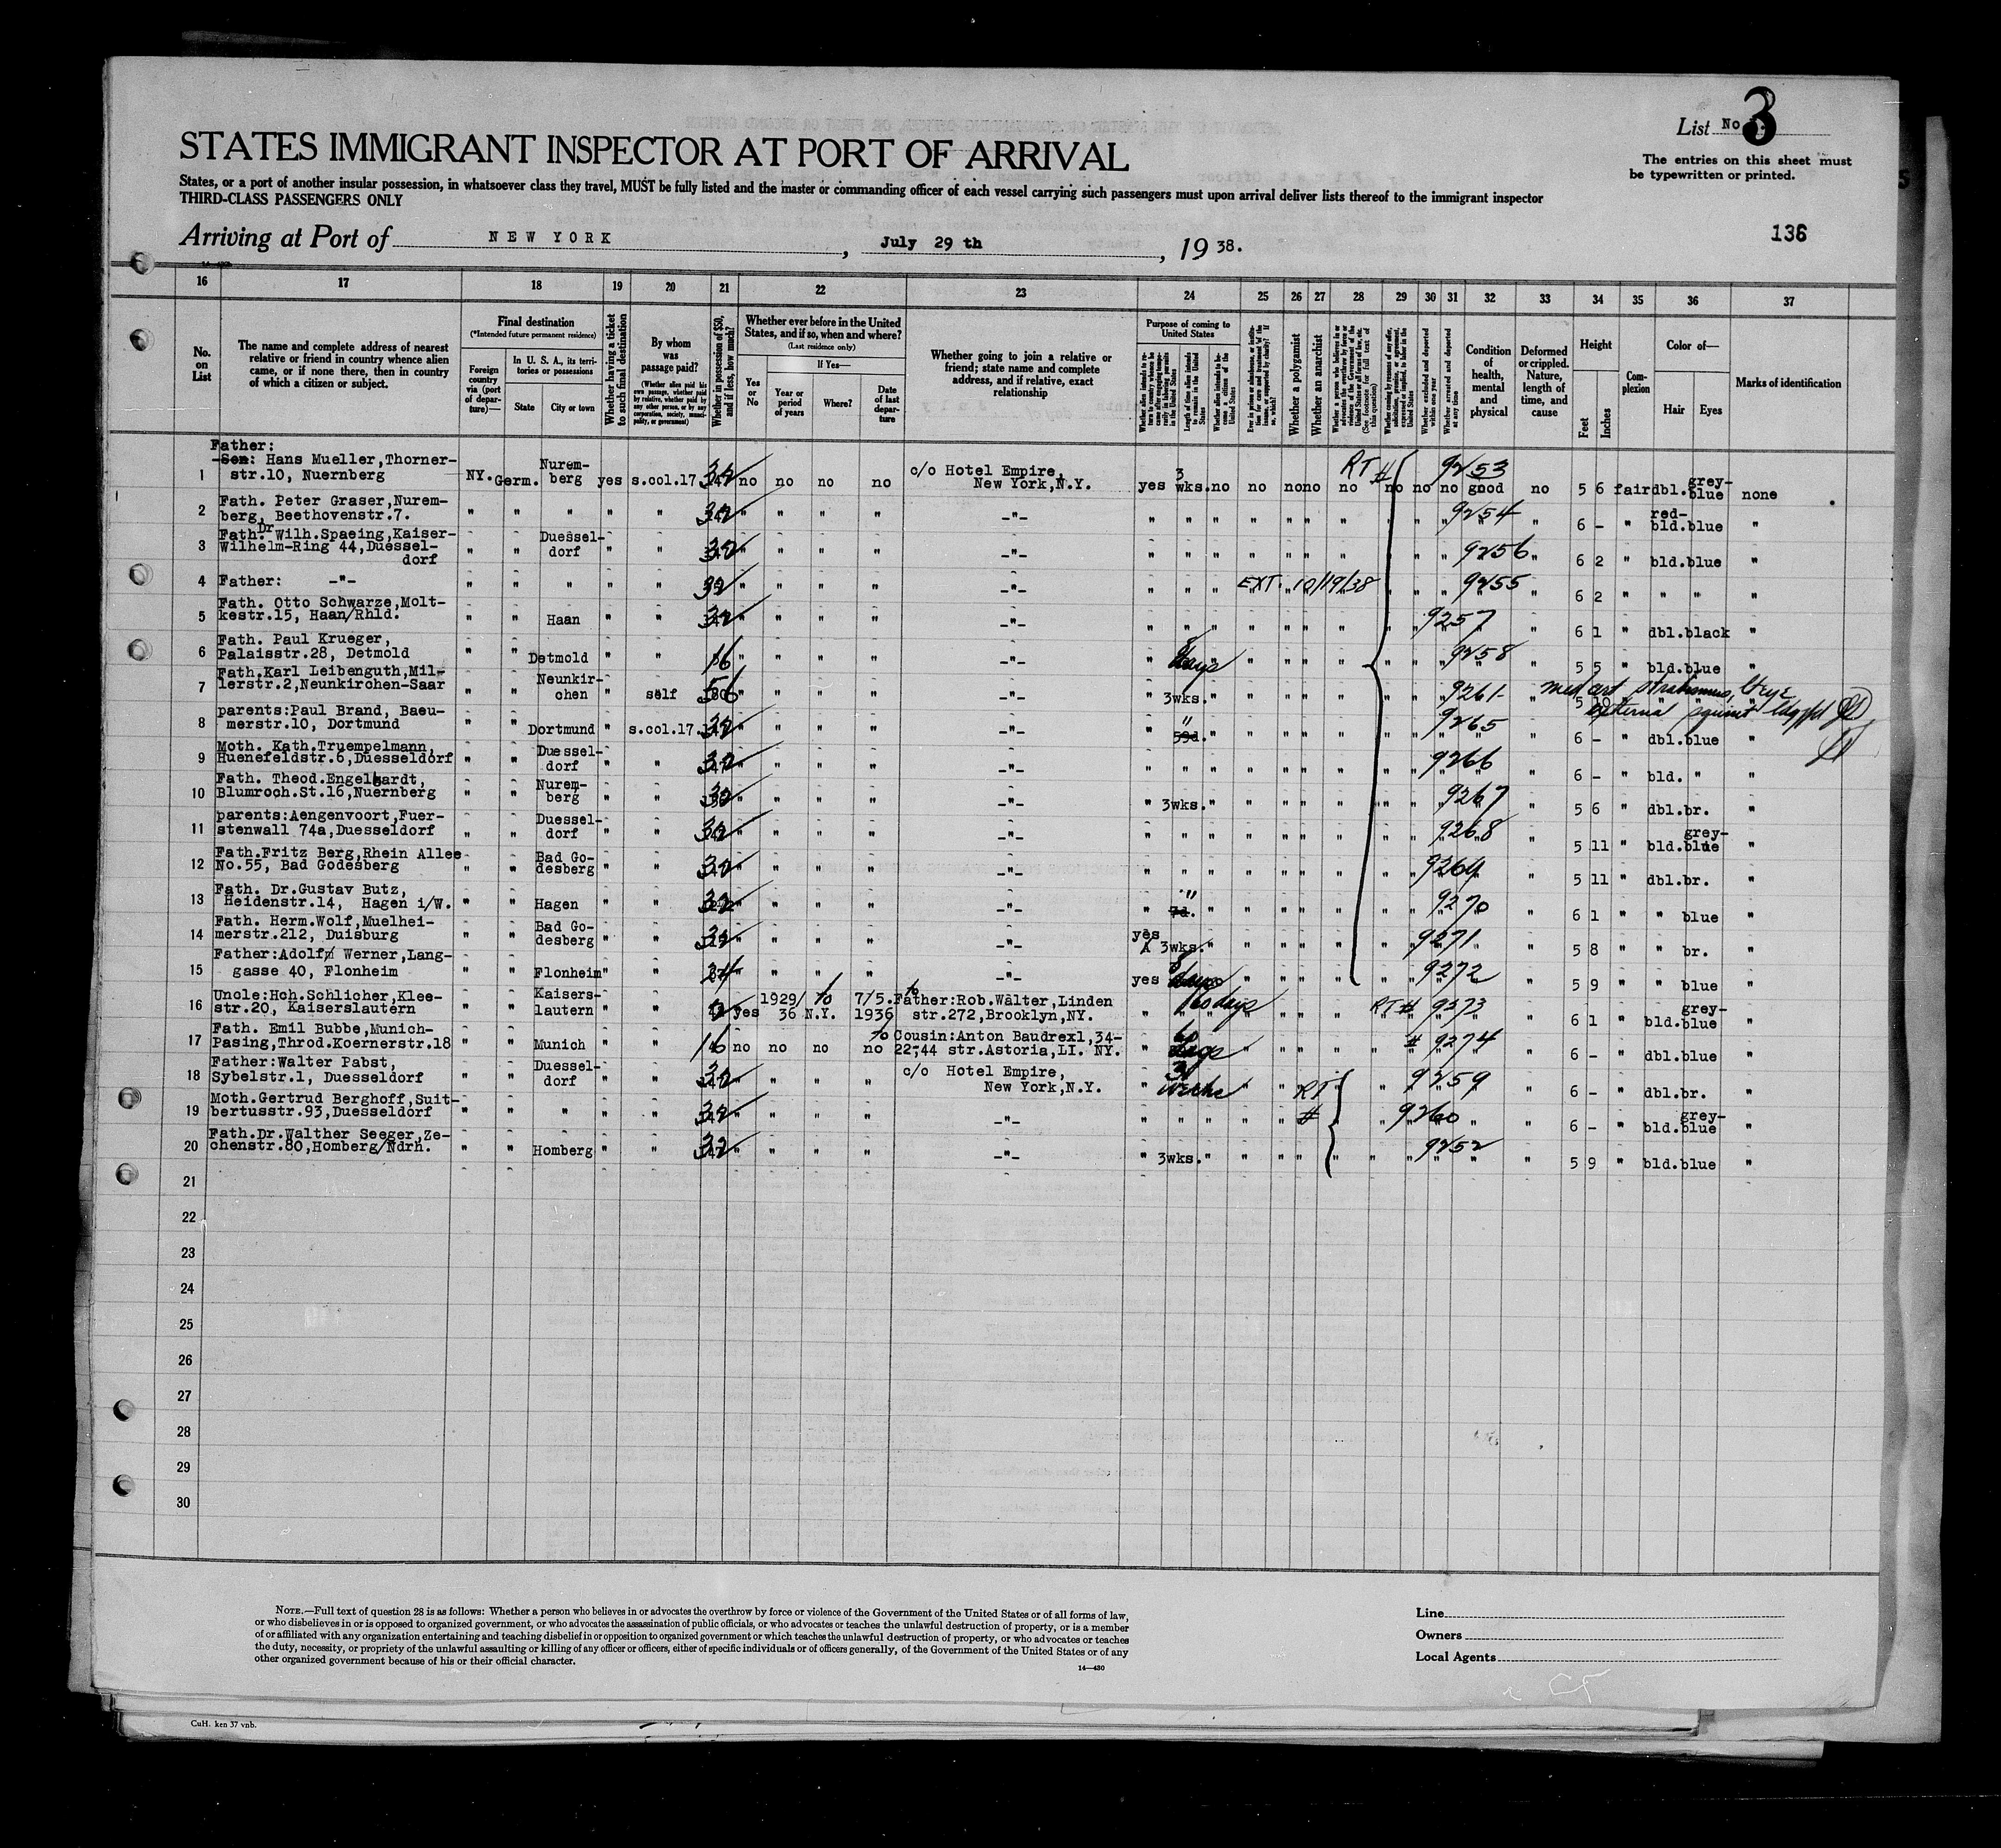 List No. 3
The entries on this sheet must
be typewritten or printed.
STATES IMMIGRANT INSPECTOR AT PORT OF ARRIVAL
States, or a port of another insular possession, in whatsoever class they travel, MUST be fully listed and the master or commanding officer of each vessel carrying such passengers must upon arrival deliver lists thereof to the immigrant inspector
THIRD-CLASS PASSENGERS ONLY
Arriving at Port of NEW YORK, July 29 th, 19 38.
136
16 17 18 19 20 21 22 23 24 25 26 27 28 29 30 31 32 33 34 35 36 37
No. on List
The name and complete address of nearest relative or friend in country whence alien came, or if none there, then in country of which a citizen or subject.
Final destination
(*Intended future permanent residence)
Foreign country via (port of departure)—
In U. S. A., its territories or possessions
State
City or town
Whether having a ticket to such final destination
By whom was passage paid?
(Whether alien paid his own passage, whether paid by relative, whether paid by any other person, or by any corporation, society, municipality, or government)
Whether in possession of $50, and if less, how much?
Whether ever before in the United States, and if so, when and where?
(Last residence only)
Yes or No
If Yes—
Year or period of years
Where?
Date of last departure
Whether going to join a relative or friend; state name and complete address, and if relative, exact relationship
Purpose of coming to United States
Length of time alien intends to remain in the United States
Whether alien intends to become a citizen of the United States
Whether a polygamist
Whether an anarchist
Condition of health, mental and physical
Deformed or crippled. Nature, length of time, and cause
Height
Feet
Inches
Complexion
Color of—
Hair
Eyes
Marks of identification
Father:
1 Son: Hans Mueller,Thorner- str.10, Nuernberg NY. Germ. Nurem- berg yes s.col.17 32 no no no no c/o Hotel Empire, New York,N.Y. yes 3 wks. no no no no no RT # no no no 9253 good no 5 6 fair dbl. grey- blue none
2 Fath. Peter Graser,Nurem- berg, Beethovenstr.7. " " " " " 32 " " " " -"- 9254 6 - " red- bld. blue "
3 Fath. Dr. Wilh.Spaeing,Kaiser- Wilhelm-Ring 44,Duessel- dorf " " Duessel- dorf " " 32 " " " " -"- 9256 6 2 " bld. blue "
4 Father: -"- " " " " " 32 " " " " -"- EXT. 10/19/38 9255 6 2 " " " "
5 Fath. Otto Schwarze,Molt- kestr.15, Haan/Rhld. " " Haan " " 32 " " " " -"- 9257 6 1 " dbl. black "
6 Fath. Paul Krueger, Palaisstr.28, Detmold " " Detmold " " 16 " " " " -"- " days 9258 5 5 " bld. blue "
7 Fath.Karl Leibenguth,Mil- lerstr.2,Neunkirchen-Saar " " Neunkir- chen " self 56 " " " " -"- " 3wks. 9261 med cert strabismus, lt eye external squint
8 parents:Paul Brand, Baeu- merstr.10, Dortmund " " Dortmund " s.col.17. 32 " " " " -"- " 59d. 9265 6 - " dbl. blue "
9 Moth. Kath.Truempelmann, Huenefeldstr.6,Duesseldorf " " Duessel- dorf " " 32 " " " " -"- 9266 6 - " bld. " "
10 Fath. Theod.Engelhardt, Blumroch.St.16,Nuernberg " " Nurem- berg " " 32 " " " " -"- " 3wks. 9267 5 6 " dbl. br. "
11 parents:Aengenvoort,Fuer- stenwall 74a,Duesseldorf " " Duessel- dorf " " 32 " " " " -"- 9268 5 11 " bld. grey- blue "
12 Fath.Fritz Berg,Rhein Allee No.55, Bad Godesberg " " Bad Go- desberg " " 32 " " " " -"- 9269 5 11 " dbl. br. "
13 Fath. Dr.Gustav Butz, Heidenstr.14, Hagen i/W. " " Hagen " " 32 " " " " -"- " 7d. 9270 6 1 " " blue "
14 Fath. Herm.Wolf,Muelhei- merstr.212, Duisburg " " Bad Go- desberg " " 32 " " " " -"- yes 3wks. 9271 5 8 " " br. "
15 Father:Adolf Werner,Lang- gasse 40, Flonheim " " Flonheim " " 24 " " " " -"- yes 9272 5 9 " " blue "
16 Uncle:Hch.Schlicher,Klee- str.20, Kaiserslautern " " Kaisers- lautern " " yes 1929/ 36 N.Y. 7/5. 1936 to Father:Rob.Walter,Linden str.272,Brooklyn,NY. 60 days RT # 9273 6 1 " bld. grey- blue "
17 Fath. Emil Bubbe,Munich- Pasing,Throd.Koernerstr.18 " " Munich " " 16 no no no no to Cousin:Anton Baudrexl,34- 22-44 str.Astoria,LI. NY. " 60 days # 9274 6 - " dbl. blue "
18 Father:Walter Pabst, Sybelstr.1, Duesseldorf " " Duessel- dorf " " 32 " " " " c/o Hotel Empire, New York,N.Y. " 3 weeks RT 9259 6 - " dbl. br. "
19 Moth.Gertrud Berghoff,Suit- bertusstr.93,Duesseldorf " " " " " 32 " " " " -"- # 9260 6 - " bld. grey- blue "
20 Fath.Dr.Walther Seeger,Ze- chenstr.80,Homberg/Ndrh. " " Homberg " " 32 " " " " -"- " 3wks. 9252 5 9 " bld. blue "
21
22
23
24
25
26
27
28
29
30
NOTE.—Full text of question 28 is as follows: Whether a person who believes in or advocates the overthrow by force or violence of the Government of the United States or of all forms of law,
or who disbelieves in or is opposed to organized government, or who advocates the assassination of public officials, or who advocates or teaches the unlawful destruction of property, or is a member
of or affiliated with any organization entertaining and teaching disbelief in or opposition to organized government or which teaches the unlawful destruction of property, or who advocates or teaches
the duty, necessity, or propriety of the unlawful assaulting or killing of any officer or officers, either of specific individuals or of officers generally, of the Government of the United States or of any
other organized government because of his or their official character.
14—430
Line
Owners
Local Agents
CuH. ken 37 vnb.